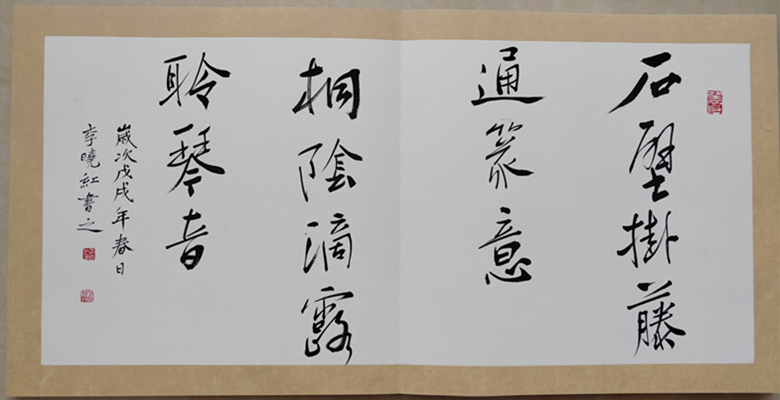 石壁掛藤
通篆意
桐陰滴露
聆琴音
歲次戊戌年春日
李曉紅書之